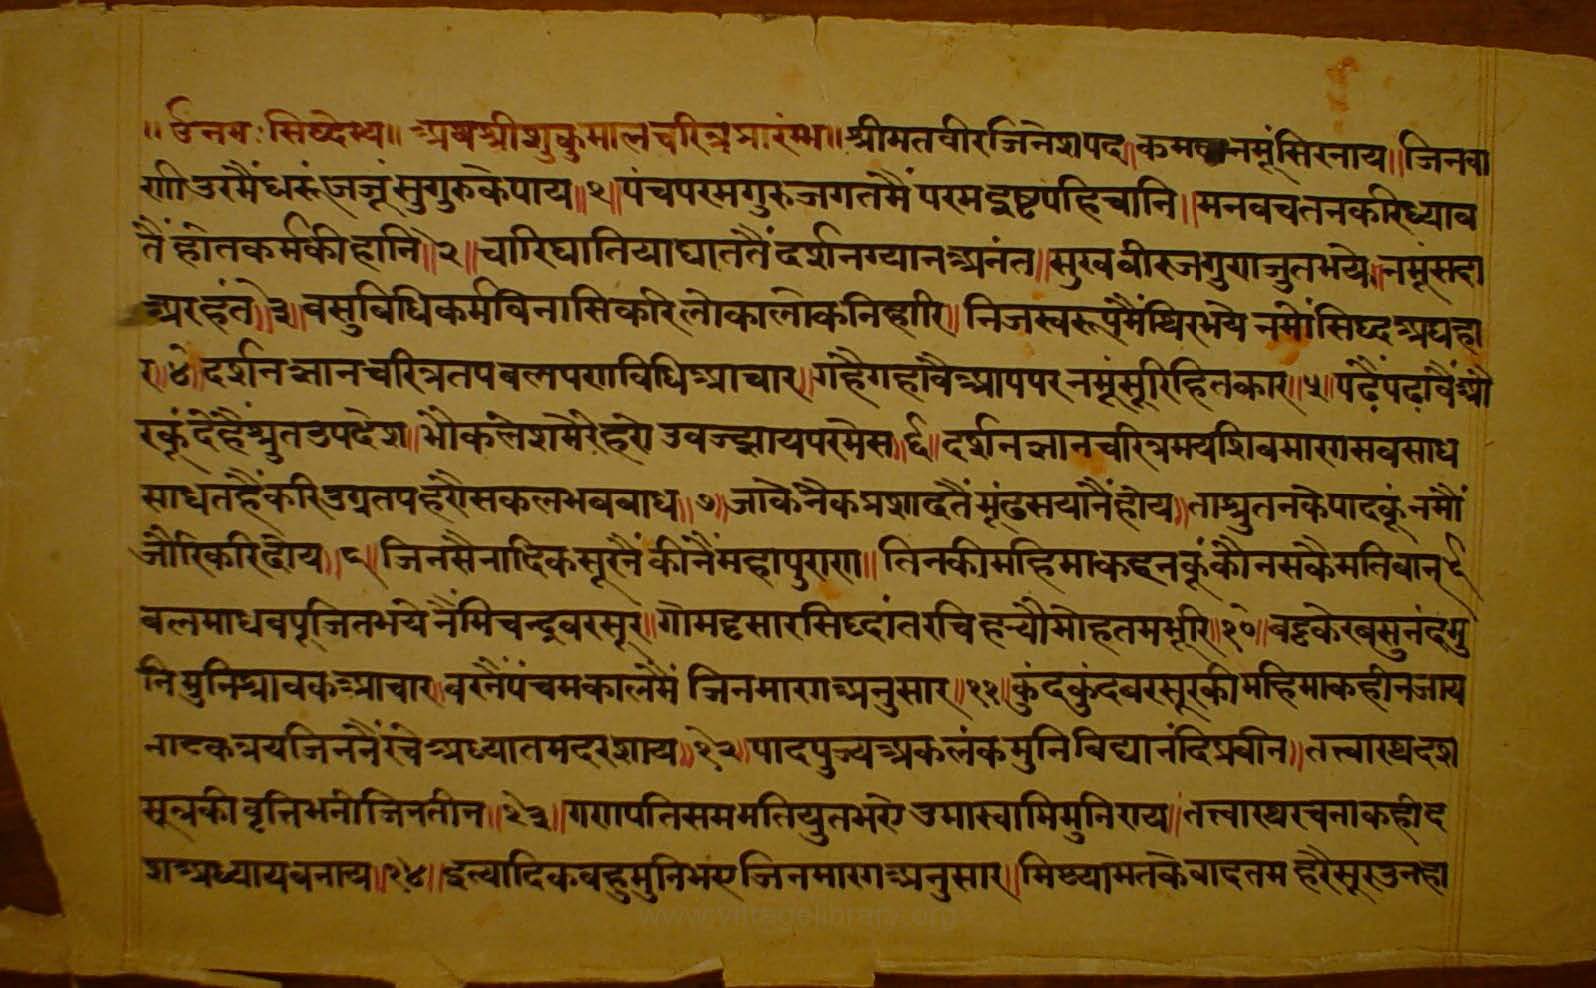 ॥ ॐनमः सिद्धेभ्य॥ अथश्रीशुकुमालचरित्रप्रारंम्भ॥ श्रीमतवीरजिनेशपद॥ नमूंसिरनाय॥ जिनवा
णी उरमैंधरूं जजूंसुगुरुकेपाय॥१॥ पंचपरमगुरुजगतमैं परमइष्टपहिचानि॥ मनवचतनकरिध्याव
तैं होतकर्मकीहानि॥२॥ चारिघातियाघाततैं दर्शनग्यानअनंत॥ सुखवीरजगुणजुतभये॥ नमूंसदा
अरहंत॥३॥ वसुविधिकर्मविनासिकरि लोकालोकनिहारि॥ निजस्वरूपमैंथिरभये नमौंसिद्धअघहा
र॥४॥ दर्शनज्ञानचरित्रतपबलपणविधिआचार॥ गहैगहावैआपपर नमूंसूरिहितकार॥५॥ पढैंपढावैंऔ
रकूं देहैंश्रुतउपदेश॥ भौकलेशमेरेहरो उवज्झायपरमेस॥६॥ दर्शनज्ञानचरित्रमयशिवमारगसवसाध
साधतहैंकरिउग्रतपहरौसकलभवबाध॥७॥ जाकेनैकप्रशादतैंमूंढसयानैंहोय॥ ताश्रुतनकेपादकूंनमौं
जौरिकरिदोय॥८॥ जिनसैनादिकसूरनैं कीनैंमहापुराण॥ तिनकीमहिमाकहनकूंकौनसकैमतिवान९
बलमाधवपूजितभये नैंमिचन्द्रवरसूर॥ गोमट्टसारसिद्धांतरचि हन्यौमोहतमभूरि॥१०॥ वट्टकेरवसुनंदमु
नि मुनिश्रावकआचार॥ वरनैंपंचमकालमैं जिनमारगअनुसार॥११॥ कुंदकुंदवरसूरकीमहिमाकहीनजाय
नाटकत्रयजिननैंरचे अध्यातमदरशाय॥१२॥ पादपुज्यअकलंकमुनि विद्यानंदिप्रवीन॥ तत्त्वारथदश
सूत्रकी वृत्तिभनीजिनतीन॥१३॥ गणपतिसममतियुतभए उमास्वामिमुनिराय॥ तत्त्वारथरचनाकहीद
शअध्यायवनाय॥१४॥ इत्यादिकवहुमुनिभए जिनमारगअनुसार॥ मिथ्यामतकेवादतम हरैसूरउनहा
www.vitragelibrary.org